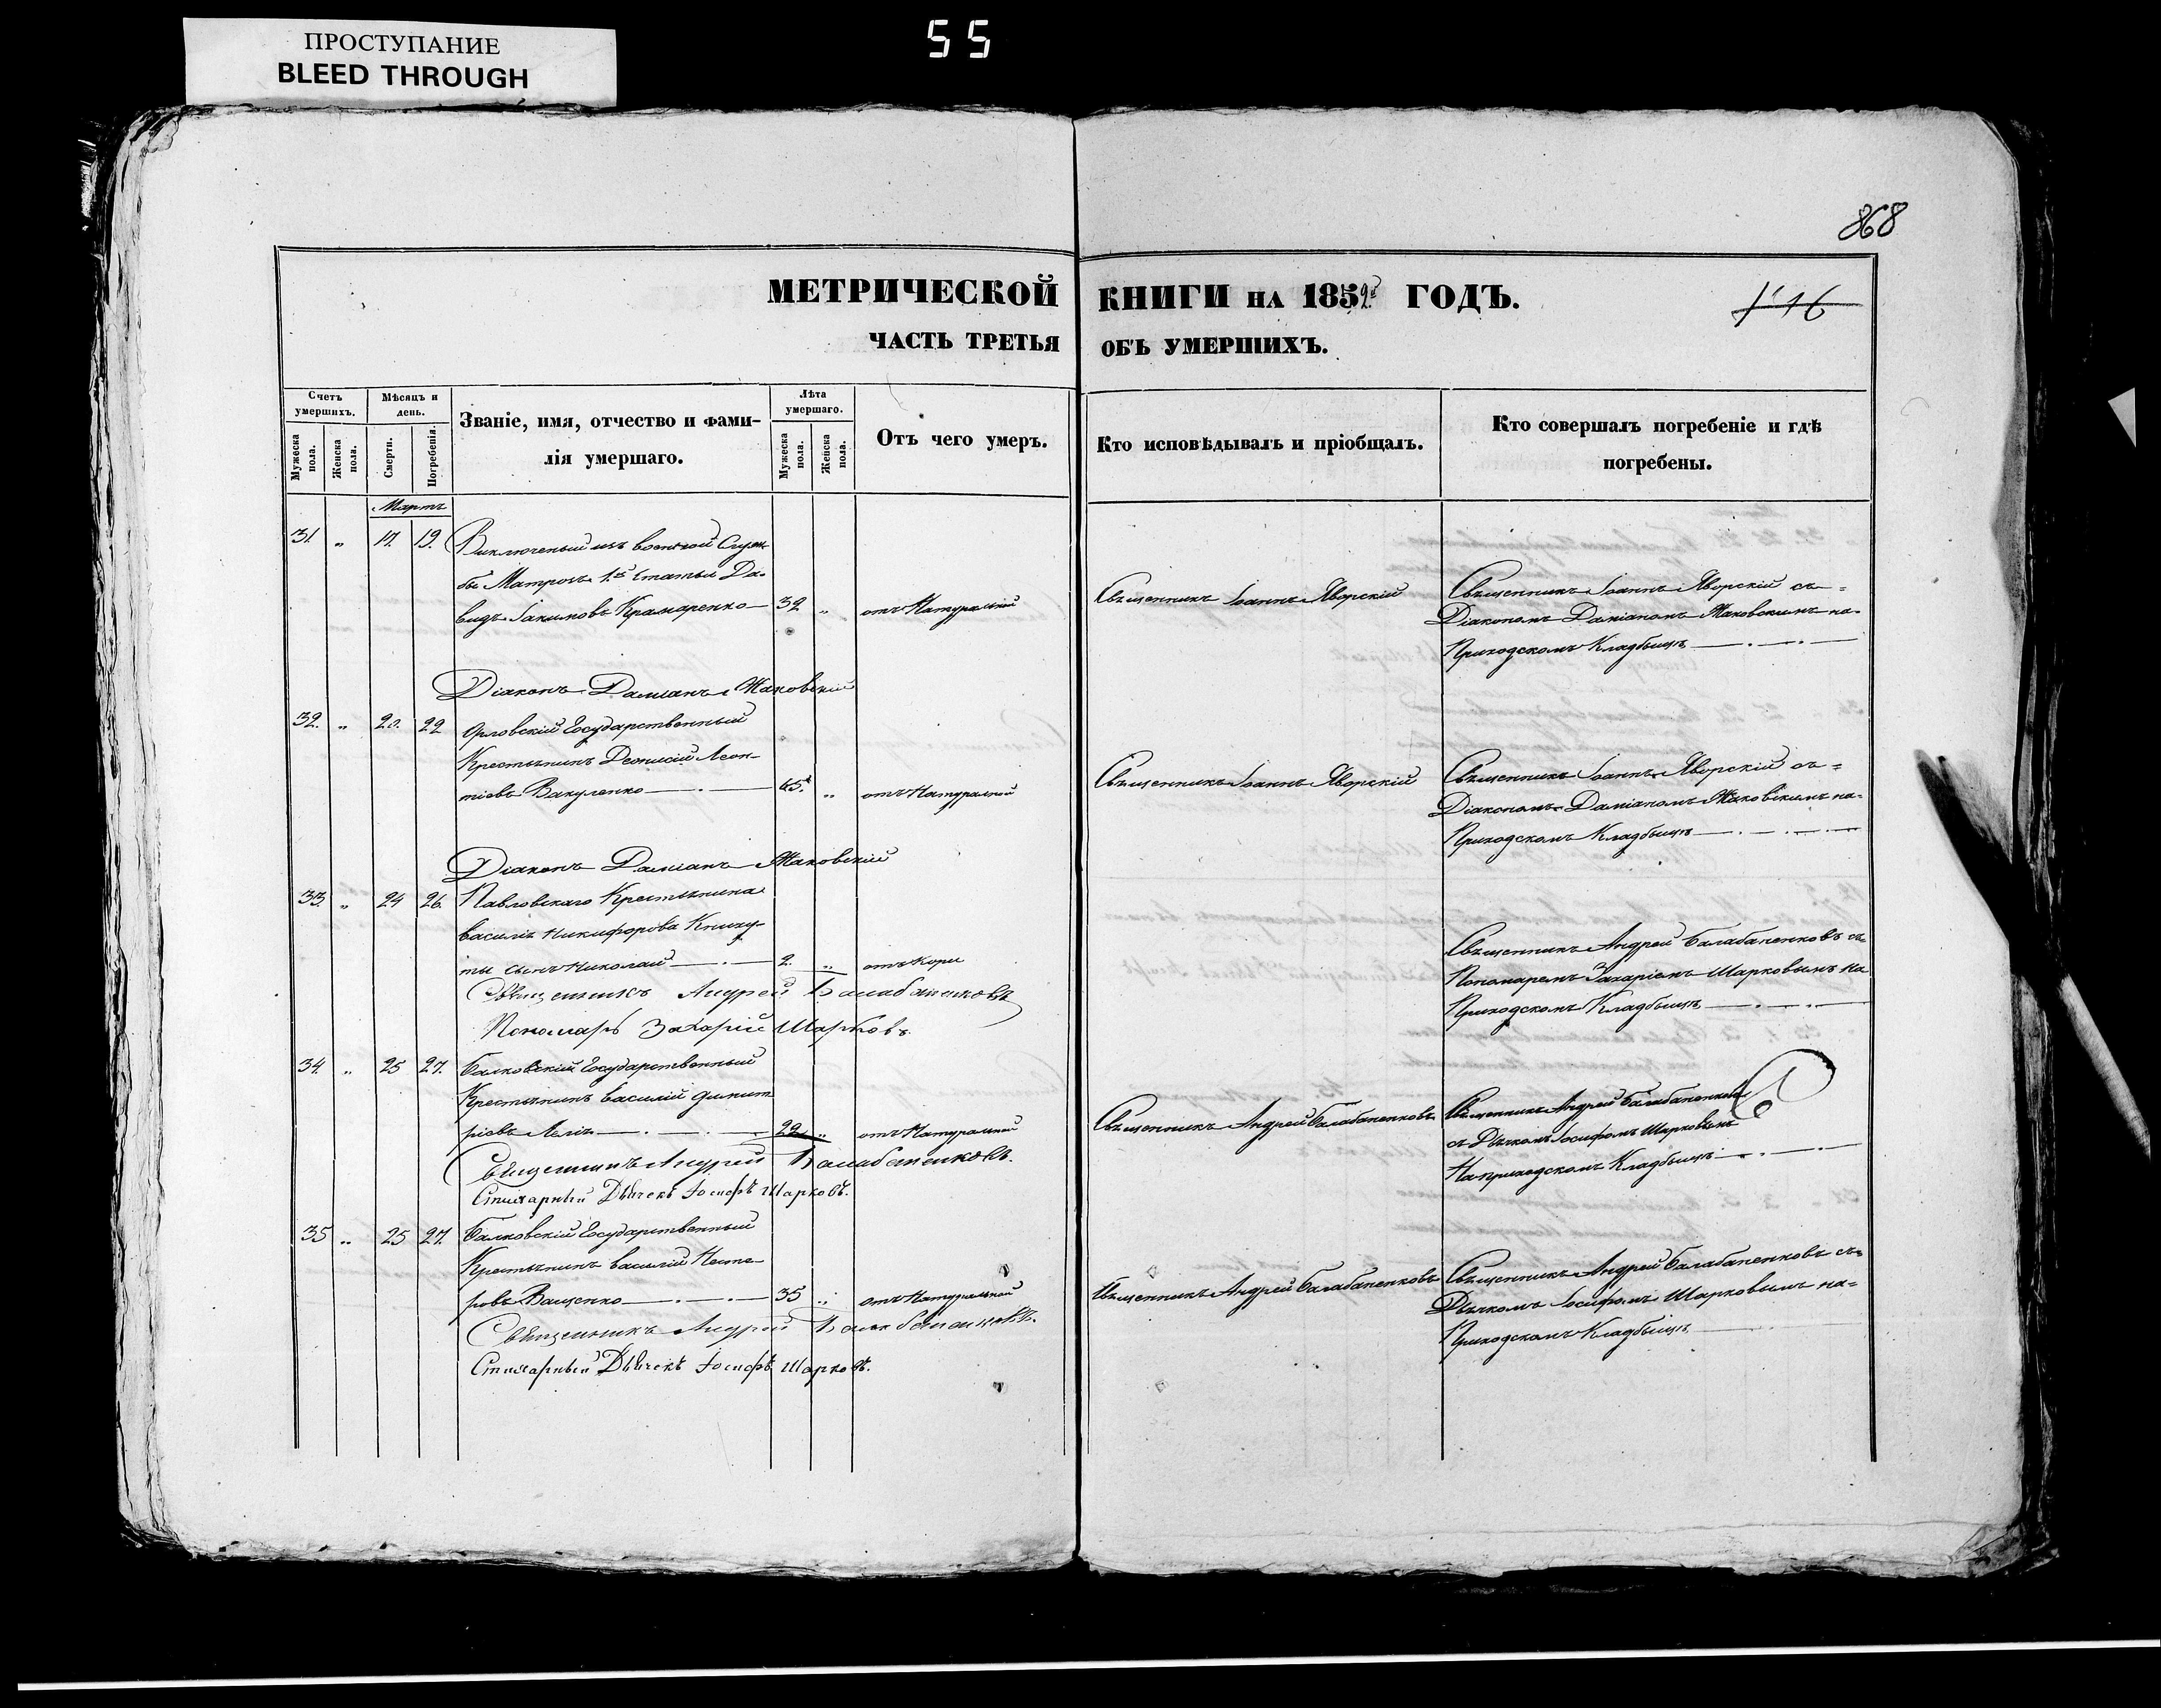 ПРОСТУПАНИЕ
BLEED THROUGH
55
868
МЕТРИЧЕСКОЙ КНИГИ НА 1852й ГОДЪ.
ЧАСТЬ ТРЕТЬЯ ОБЪ УМЕРШИХЪ.
Счетъ умершихъ.
Мужеска пола.
Женска пола.
Мѣсяцъ и день.
Смерти.
Погребенія.
Званіе, имя, отчество и фами-
лія умершаго.
Лѣта умершаго.
Мужеска пола.
Женска пола.
Отъ чего умеръ.
Кто исповѣдывалъ и пріобщалъ.
Кто совершалъ погребеніе и гдѣ
погребены.
Мартъ
31. „ 17. 19. Виключеный изъ военной Служ-
бы Матросъ 1й Статьи Да-
видъ Іакимовъ Крамаренко 32 „ отъ Натуральной
Священникъ Іоаннъ Яворскій
Священникъ Іоаннъ Яворскій съ
Діакономъ Даміаномъ Маковскимъ на
Приходскомъ Кладбищѣ
Діаконъ Даміанъ Маковскій
32. „ 20. 22 Орловскій Государственный
Крестьянинъ Деонисій Леон-
тіевъ Вакуленко 65. „ отъ Натуральной
Священникъ Іоаннъ Яворскій
Священникъ Іоаннъ Яворскій съ
Діакономъ Даміаномъ Маковскимъ на
Приходскомъ Кладбищѣ
Діаконъ Даміанъ Маковскій
33. „ 24 26. Павловскаго Крестьянина
Василія Никифорова
сынъ Николай 2. „ отъ Кори
Священникъ Андрей Балабаненковъ съ
Пономаремъ Захаріемъ Шарковымъ на
Приходскомъ Кладбищѣ
Священникъ Андрей Балабаненковъ
Пономарь Захарій Шарковъ
34. „ 25 27. Балковскій Государственный
Крестьянинъ Василій Димит
ріевъ 22 „ отъ Натуральной
Священникъ Андрей Балабаненковъ
Священникъ Андрей Балабаненковъ
съ Дьячкомъ Іосифомъ Шарковымъ
На приходскомъ Кладбищѣ
Священникъ Андрей Балабаненковъ.
Стихарный Дьячекъ Іосифъ Шарковъ.
35 „ 25 27. Балковскій Государственный
Крестьянинъ Василій Несте-
ровъ Ващенко 35 „ отъ Натуральной
Священникъ Андрей Балабаненковъ
Священникъ Андрей Балабаненковъ съ
Дьячкомъ Іосифомъ Шарковымъ на
Приходскомъ Кладбищѣ
Священникъ Андрей Балабаненковъ.
Стихарный Дьячекъ Іосифъ Шарковъ.